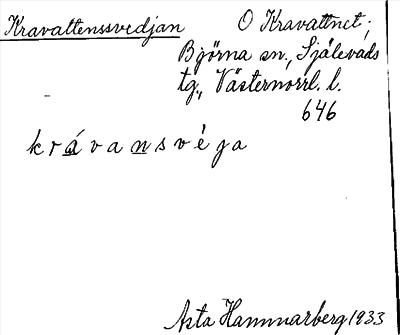 Kravattenssvedjan O Kravattnet;
Björna sn, Själevads
tg, Västernorrl. l.
646
krávansvéga
Asta Hammarberg 1933